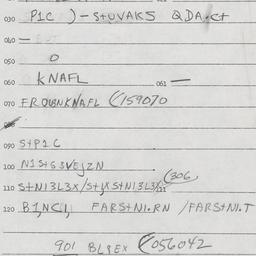 030 P1C )-S+UVAKS QDA.C+
040 —
050 O
060 KNAFL 061 —
070 FROUBNKNAFL (159070
090 S+P1C
100 N1S+G3VEJZN
(306)
110 S+N13L3X/S+JXS+N13L3X
120 B1NC1, FARS+N1.RN /FARS+N1.T
901 BL9EX (056042